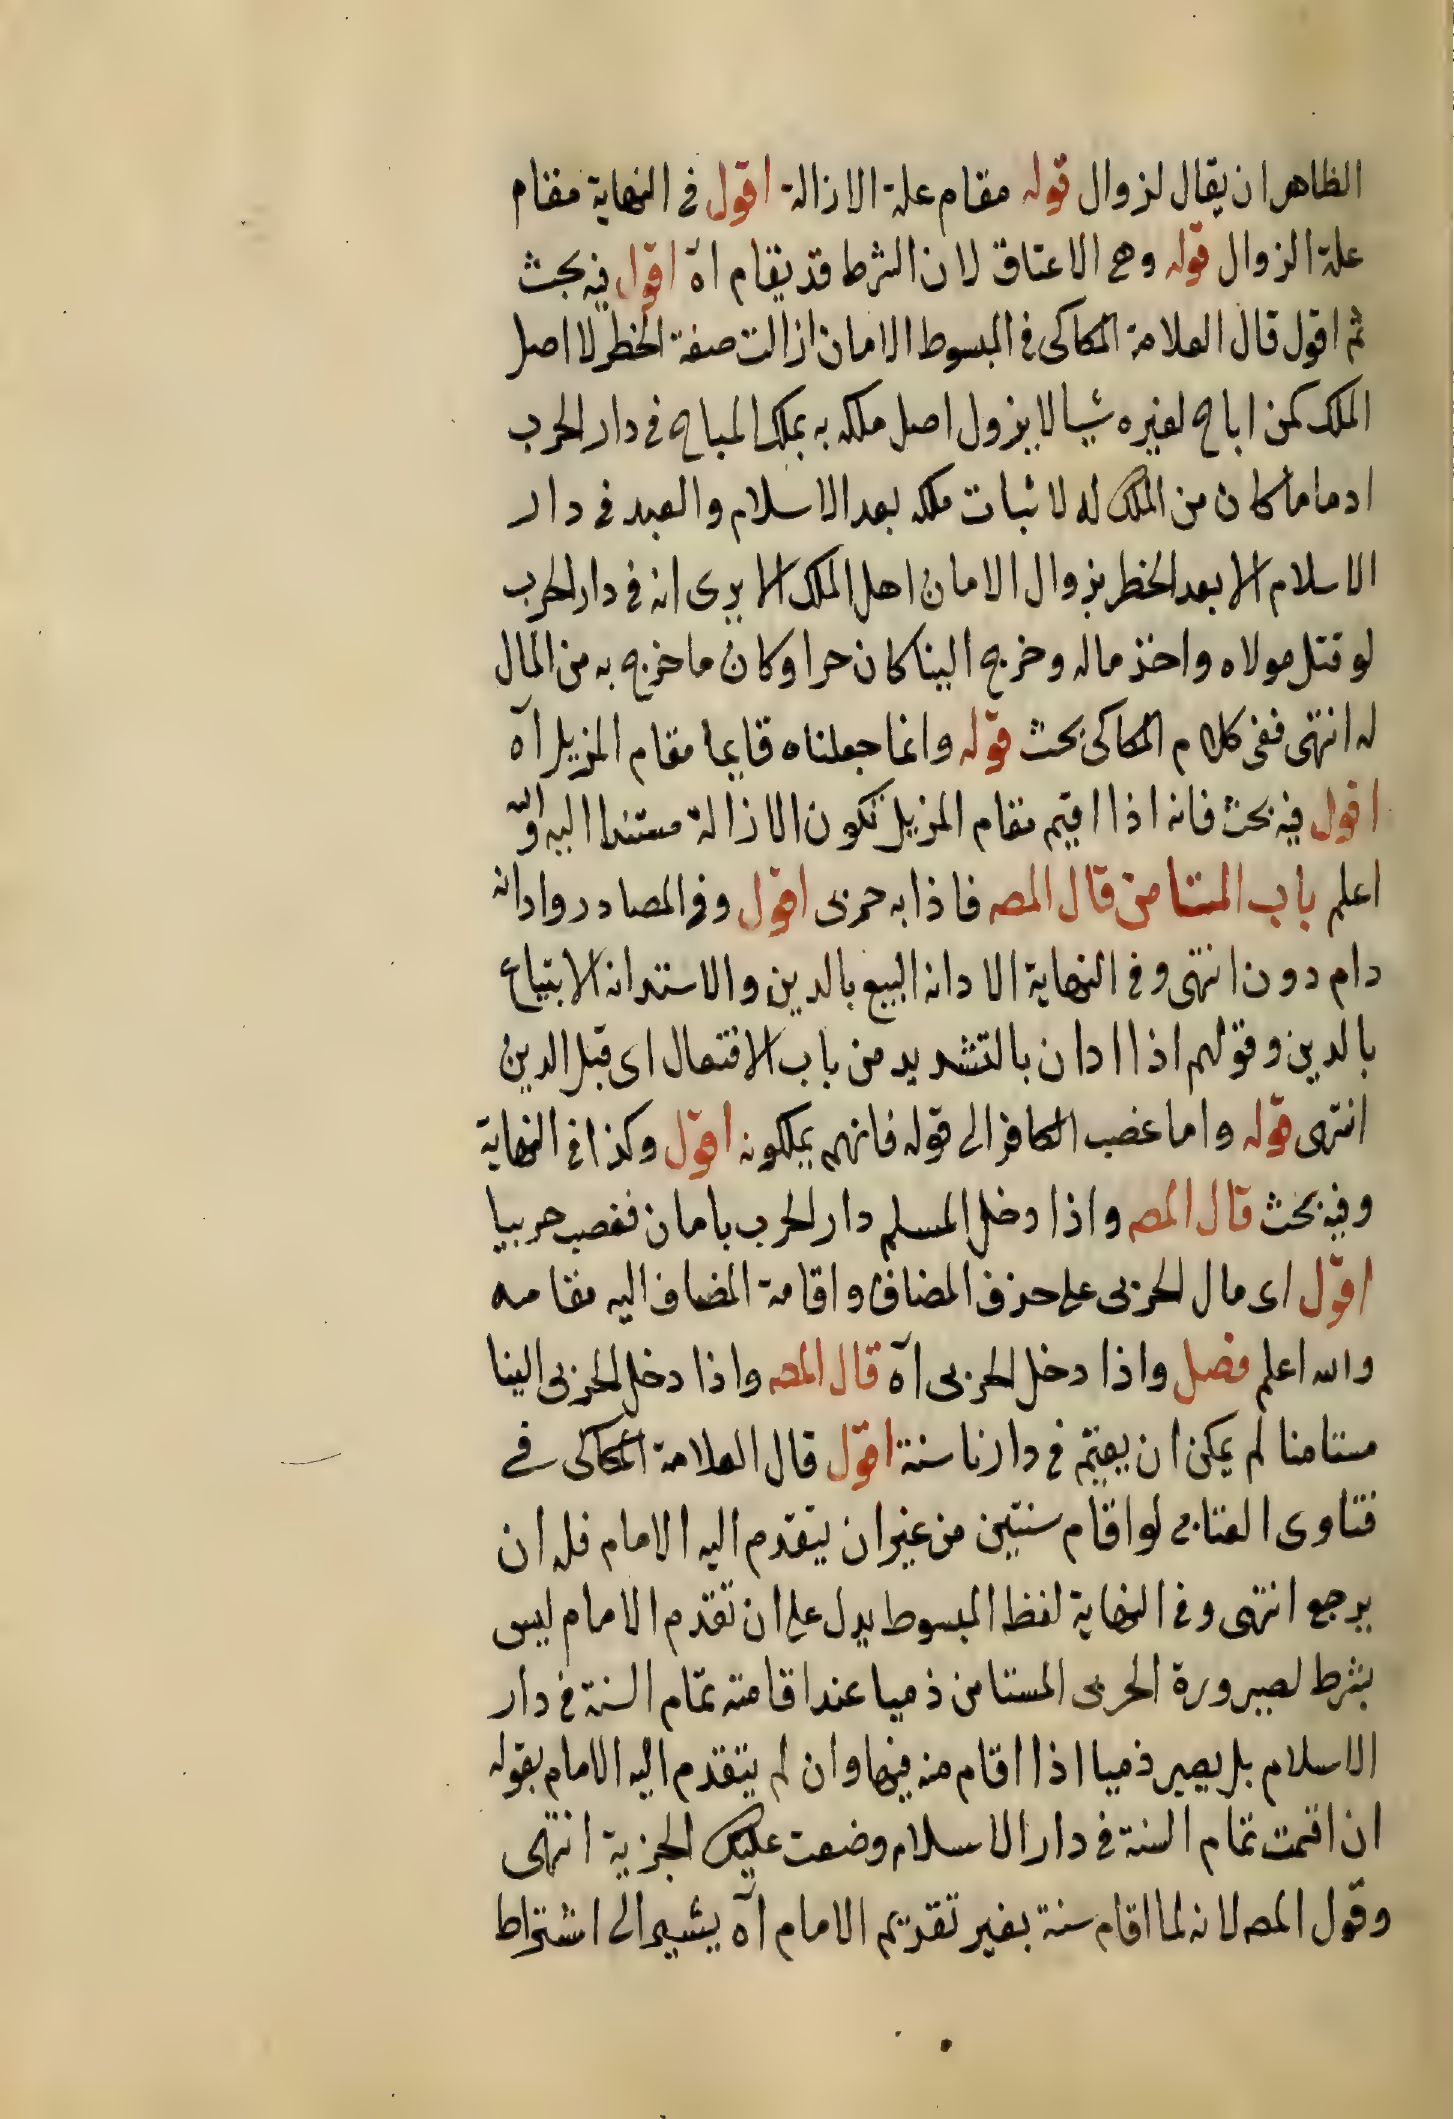 الظاهر ان يقال لزوال قوله مقام علة الازالة اقول في النهاية مقام
علة الزوال قوله وهي الاعتاق لان الشرط قد يقام اه اقول فيه بحث
ثم اقول قال العلامة الكاكى في المبسوط الامان ازالت صفة الخطر لا اصل
الملك كمن اباح لغيره شيا لا يزول اصل ملكه به بملك المباح في دار الحرب
ادما ما كان من الملك له لا ثبات ملكه بعد الاسلام والعبد في دار
الاسلام الا بعد الخطر بزوال الامان اهل الملك الا يرى انه في دار الحرب
لو قتل مولاه واخذ ماله وخرج الينا كان حرا وكان ما خرج به من المال
له انتهى ففى كلام الكاكى بحث قوله وانما جعلناه قايما مقام المزيل آه
اقول فيه بحث فانه اذا اقيم مقام المزيل تكون الازالة مستندا اليه والله
اعلم باب المستامن قال المصه فاذا به حربى اقول وفى المصادر وادانه
دام دون انتهى وفى النهاية الادانه البيع بالدين والاستدانه الابتياع
بالدين وقولهم اذا ادان بالتشديد من باب الافتعال اى قبل الدين
انتهى قوله واما غصب الكافر الى قوله فانهم يملكونه اقول وكذا في النهاية
وفيه بحث قال المصه واذا دخل المسلم دار الحرب بامان فغصب حربيا
اقول اى مال الحربى على حذف المضاف واقامة المضاف اليه مقامه
والله اعلم فصل واذا دخل الحربى آه قال المصه واذا دخل الحربى الينا
مستامنا لم يمكن ان يقيم في دارنا سنة اقول قال العلامة الكاكى في
فتاوى العتابى لو اقام سنتين من غير ان يتقدم اليه الامام فله ان
يرجع انتهى وفى النهاية لفظ المبسوط يدل على ان تقدم الامام ليس
بشرط لصيرورة الحربى المستامن ذميا عند اقامته تمام السنة في دار
الاسلام بل يصير ذميا اذا اقام منه فيها وان لم يتقدم اليه الامام بقوله
ان اقمت تمام السنة في دار الاسلام وضعت عليك الجزية انتهى
وقول المصه لانه لما اقام سنة بغير تقديم الامام آه يشير الى اشتراط